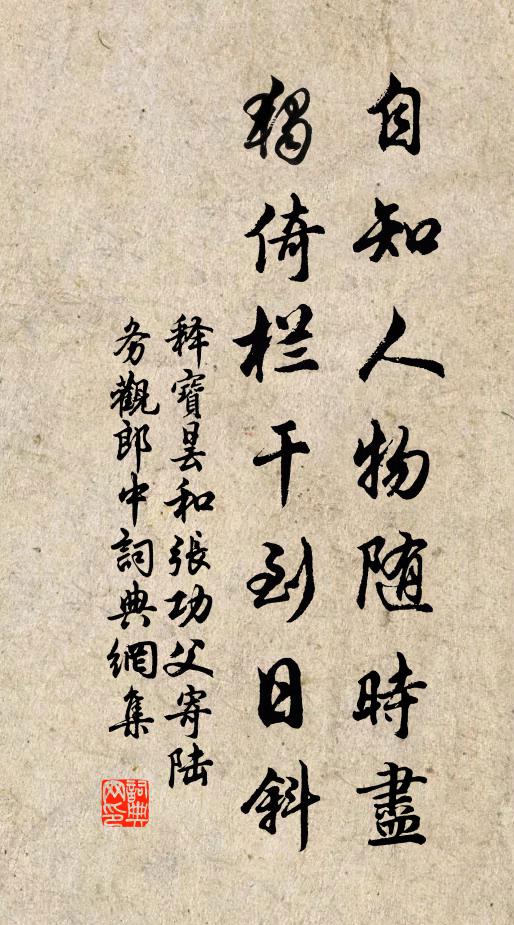 自知人物随時盡
獨倚栏干到日斜
释寶昙和張功父寄陆
务觀郎中詞典網集
詞典
网印